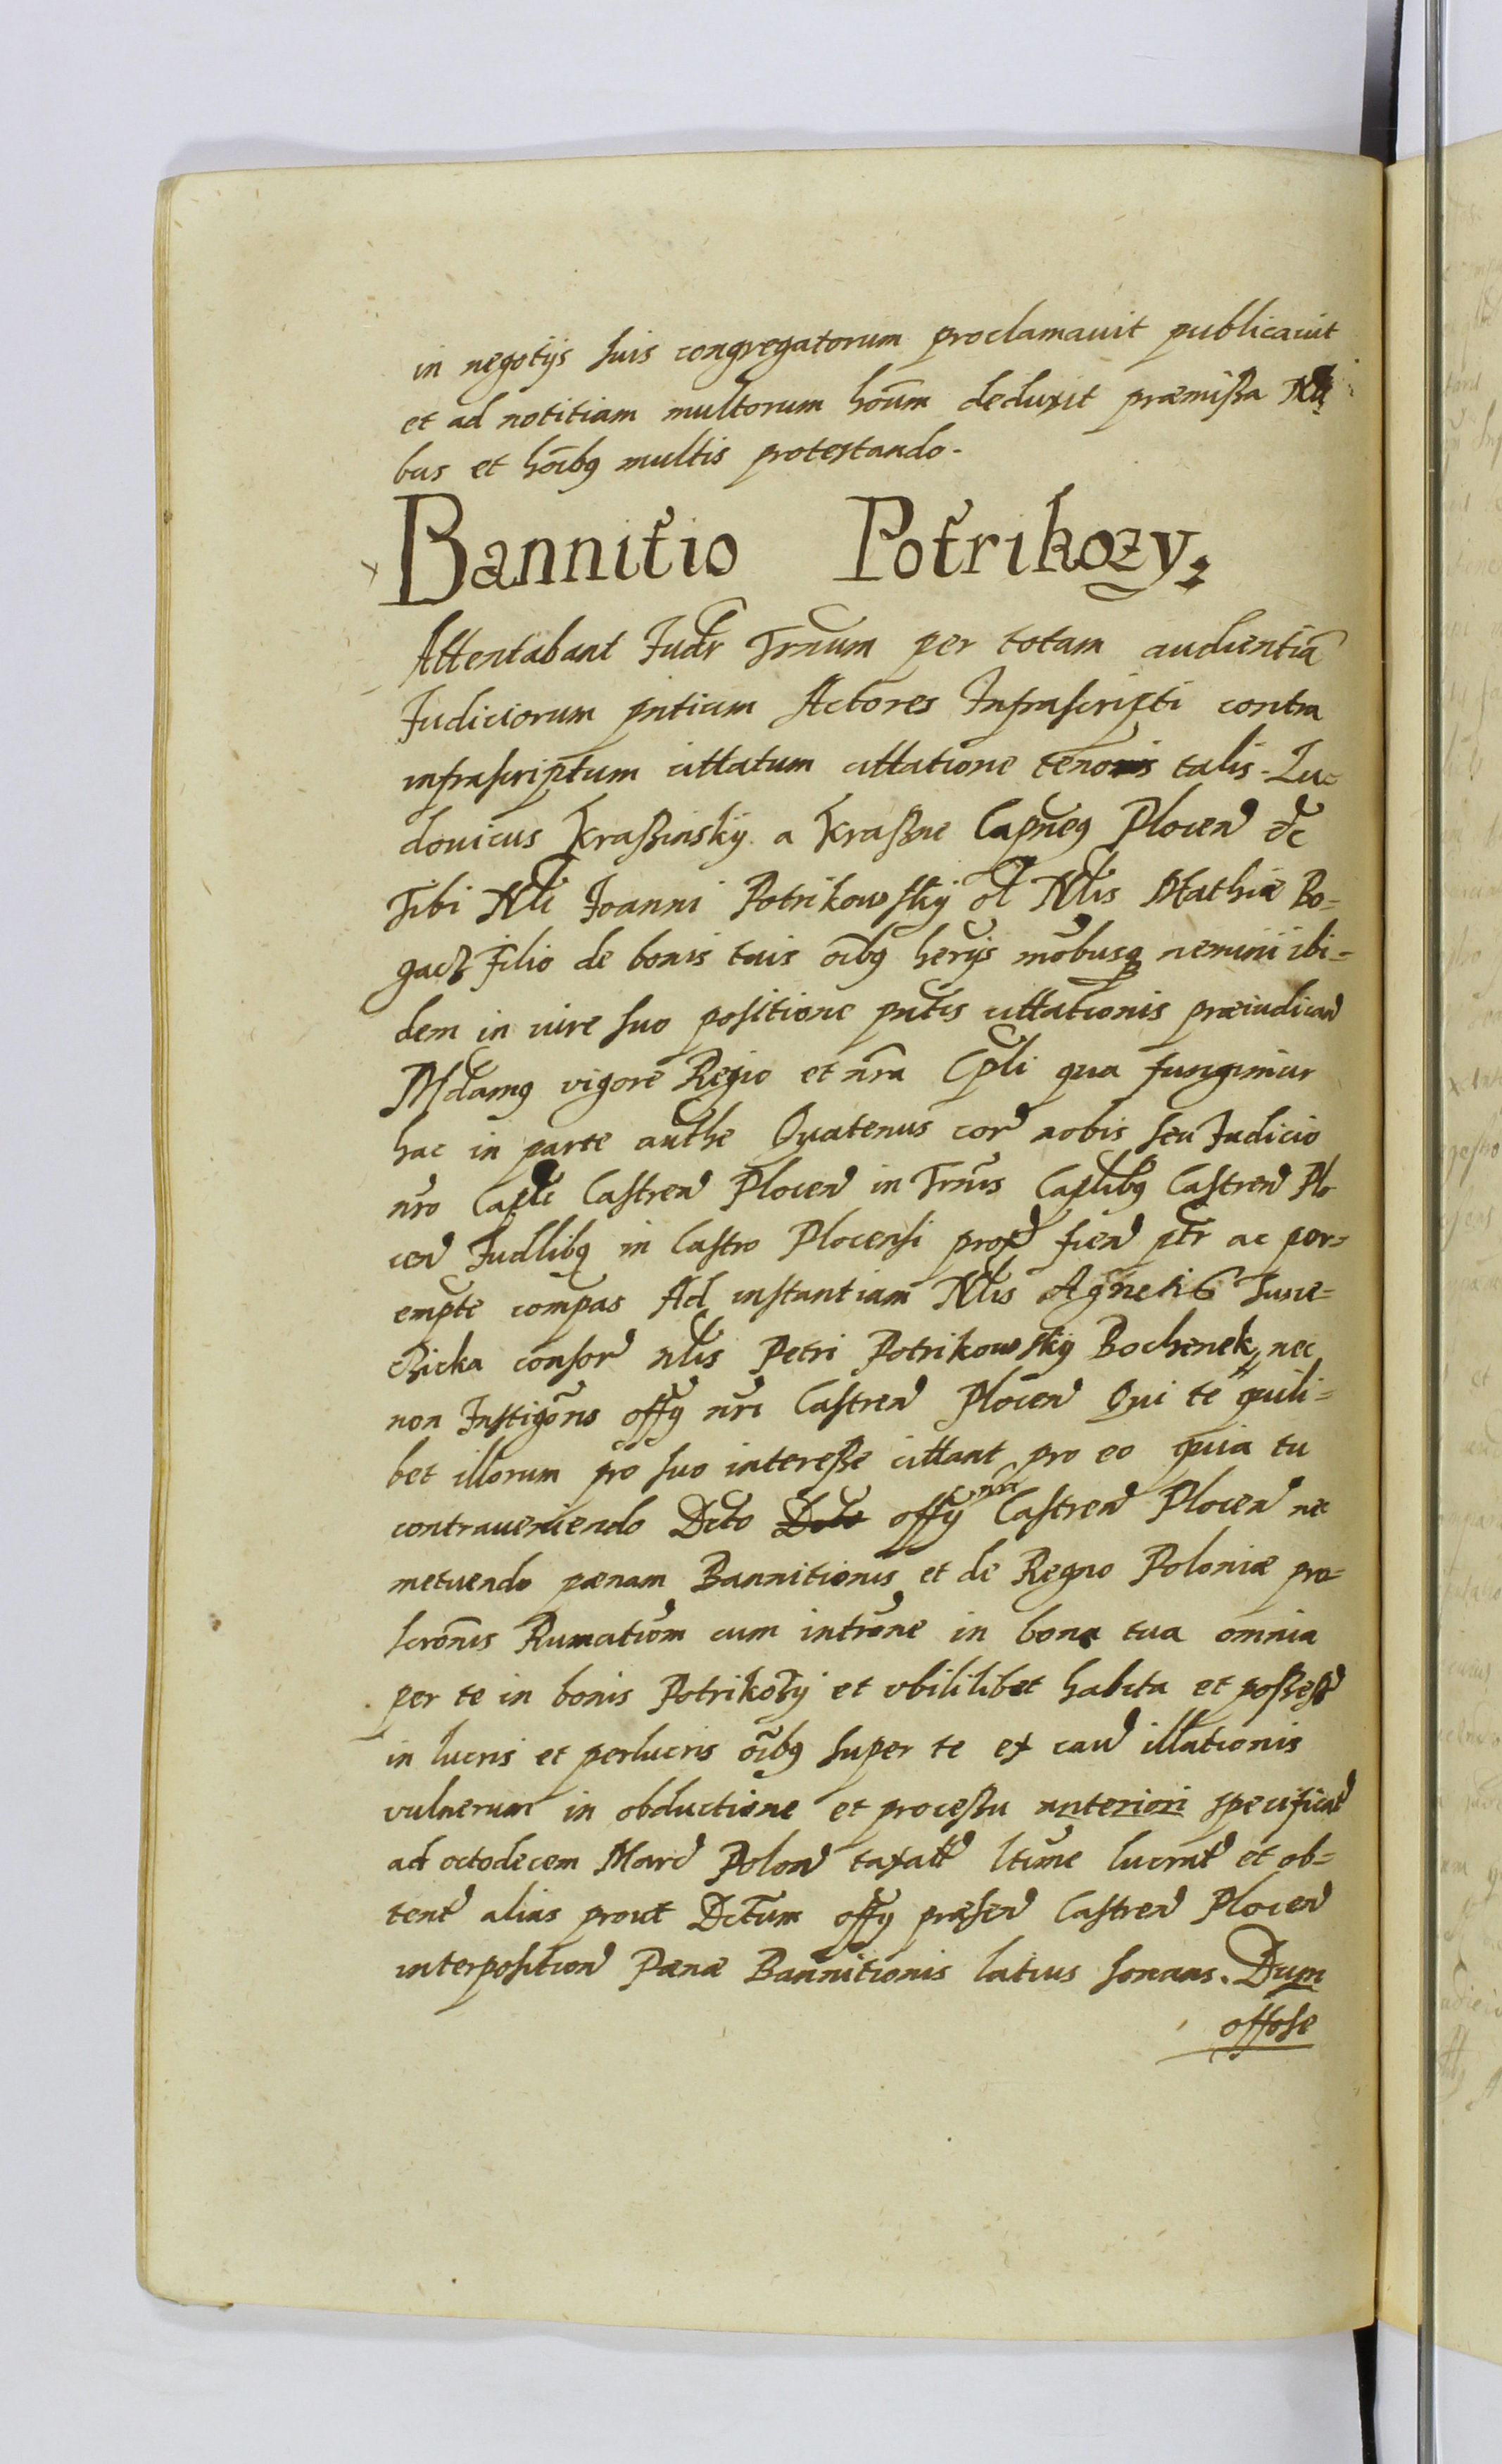 in negotijs suis congregatorum proclamavit publicavit
et ad notitiam multorum hoīum deduxit præmissa Nli
bus et hoībq multis protestando.
Bannitio Potrikozy
Attentabant Judr Trnum per totam audientiā
Judiciorum pntium Actores Infrascripti contra
infrascriptum cittatum cittatione tenoris talis. Lu=
dovicus Kraßinskÿ a Kraßne Capneq Plocen̄ &c
Tibi Nli Joanni Potrikowskÿ ol Nlis Mathiæ Bo=
gacz filio de bonis tuis oībq herijs mobusq nemini ibi=
dem in iure suo positione pntis cittationis præiudican̄
Mdamq vigore Regio et nra Cpli qua fungimur
hac in parte authe Quatenus cor̄ nobis seu Judicio
nro Capli Castren̄ Plocen̄ in Trnis Caplibq Castren̄ Plo
cen̄ Judlibq in Castro Plocensi prox̄ fien̄ ptr ac per=
empte compas Ad instantiam Nlis Agnetis June=
czicka consor̄ nlis Petri Potrikowskÿ Bochenek, nec
non Instigōris offÿ nri Castren̄ Plocen̄ Qui te quili=
bet illorum pro suo interesse cittant pro eo quia tu
contraveniendo Dcto Dcto offÿ nri Castren̄ Plocen̄ nec
metuendo pœnam Bannitionis et de Regno Poloniæ pro=
scrōnis Rumatiōm cum intrōne in bona tua omnia
per te in bonis Potrikozÿ et ubililibet habita et posseß̄
in lucris et perlucris oībq super te ex cau̅ illationis
vulnerum in obductione et processu anteriori specificat̄
ad octodecem Marc̄ Polon̄ taxatt̄ ltime lucrat̄ et ob=
tent̄ alias prout Dctum offÿ præsen̄ Castren̄ Plocen̄
interposition̄ Pœnæ Bannitionis latius sonans. Dum
offose